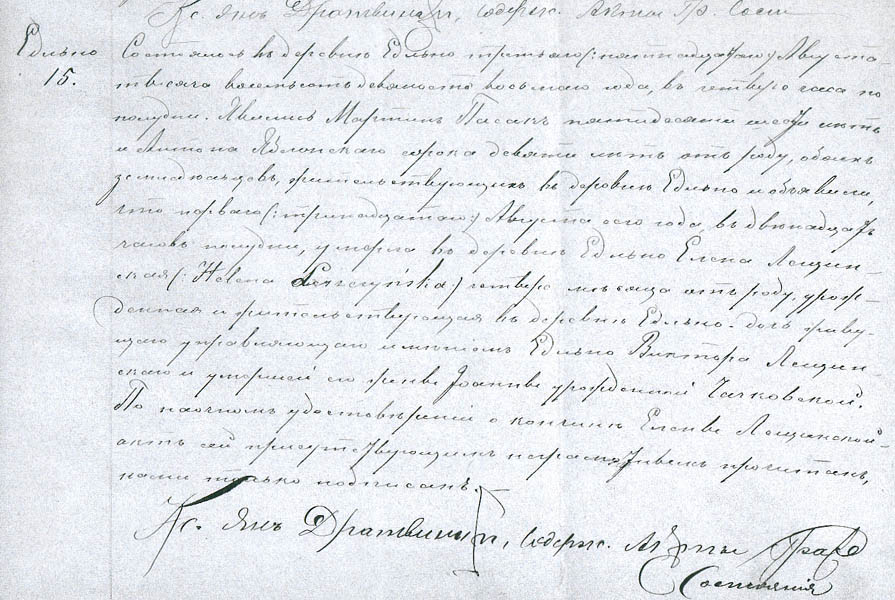 Кс. Янъ Дратвински, содерж. Акты Гр. Сост
Едльно
15.
Состоялось въ деревнѣ Едльно третьяго (:пятнадцатаго:) Августа
тысяча восемьсотъ девяносто восьмаго года, въ четыре часа по
полудни. Явились Мартинъ Пасакъ пятидесяти шести лѣтъ
и Антона Яблонскаго сорока девяти лѣтъ отъ роду, обоихъ
земледѣльцевъ, жительствующихъ въ деревнѣ Едльно и объявили,
что перваго (:тринадцатаго:) Августа сего года, въ двѣнадцать
часовъ полудни, умерла въ деревнѣ Едльно Елена Лещин-
ская (: Helena Leszczyńska:) четыре мѣсяца отъ роду, урож-
денная и жительствующая въ деревнѣ Едльно. дочь живу-
щаго управляющаго имѣніемъ Едльно Виктора Лещин-
скаго и умершей его жены Іоанны урожденной Чачковской.
По наочномъ удостовѣреніи о кончинѣ Елены Лещинской
актъ сей присутствующимъ неграмотнымъ прочитанъ,
нами только подписанъ.
Кс. Янъ Дратвински, содерж. Акты Граж
Состоянія